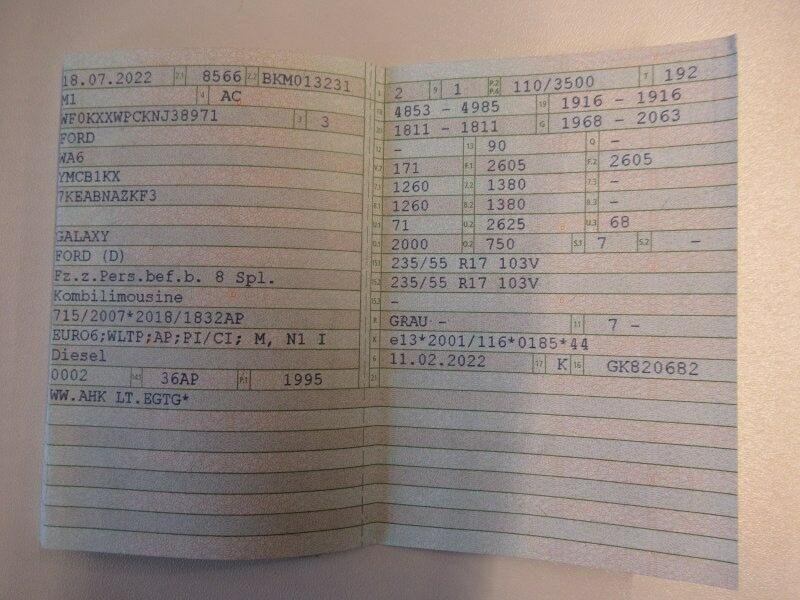 18.07.2022 2.1 8566 2.2 BKM013231
M1 4 AC
WF0KXXWPCKNJ38971 3 3
FORD
WA6
YMCB1KX
7KEABNAZKF3
GALAXY
FORD (D)
Fz.z.Pers.bef.b. 8 Spl.
Kombilimousine
715/2007*2018/1832AP
EURO6;WLTP;AP;PI/CI; M, N1 I
Diesel
0002 14.1 36AP P.1 1995
WW.AHK LT.EGTG*
L 2 9 1 P.2 P.4 110/3500 T 192
18 4853 - 4985 19 1916 - 1916
20 1811 - 1811 G 1968 - 2063
12 - 13 90 Q -
V.7 171 F.1 2605 F.2 2605
7.1 1260 7.2 1380 7.3 -
8.1 1260 8.2 1380 8.3 -
U.1 71 U.2 2625 U.3 68
O.1 2000 O.2 750 S.1 7 S.2 -
15.1 235/55 R17 103V
15.2 235/55 R17 103V
15.3 -
R GRAU - 11 7 -
K e13*2001/116*0185*44
6 11.02.2022 17 K 16 GK820682
21